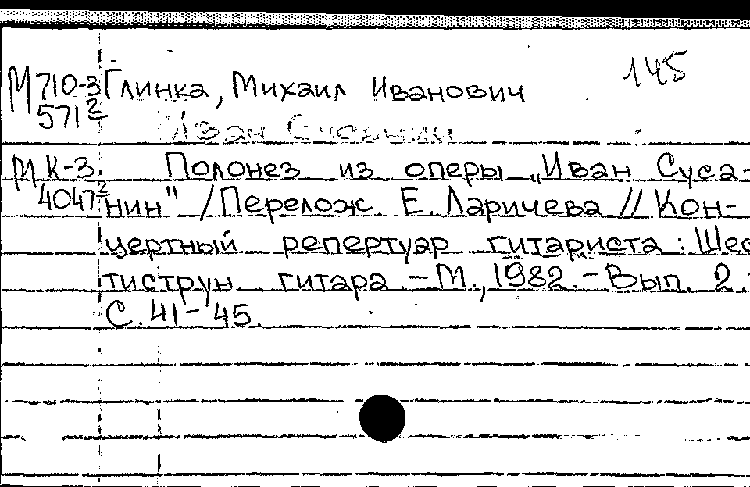 145
М 710-3 Глинка, Михаил Иванович
571² Иван Сусанин
М К-3 Полонез из оперы „Иван Суса-
4047² нин" / Перелож. Е. Ларичева // Кон-
цертный репертуар гитариста: Шес
тиструн. гитара. – М., 1982. – Вып. 2.
С. 41-45.